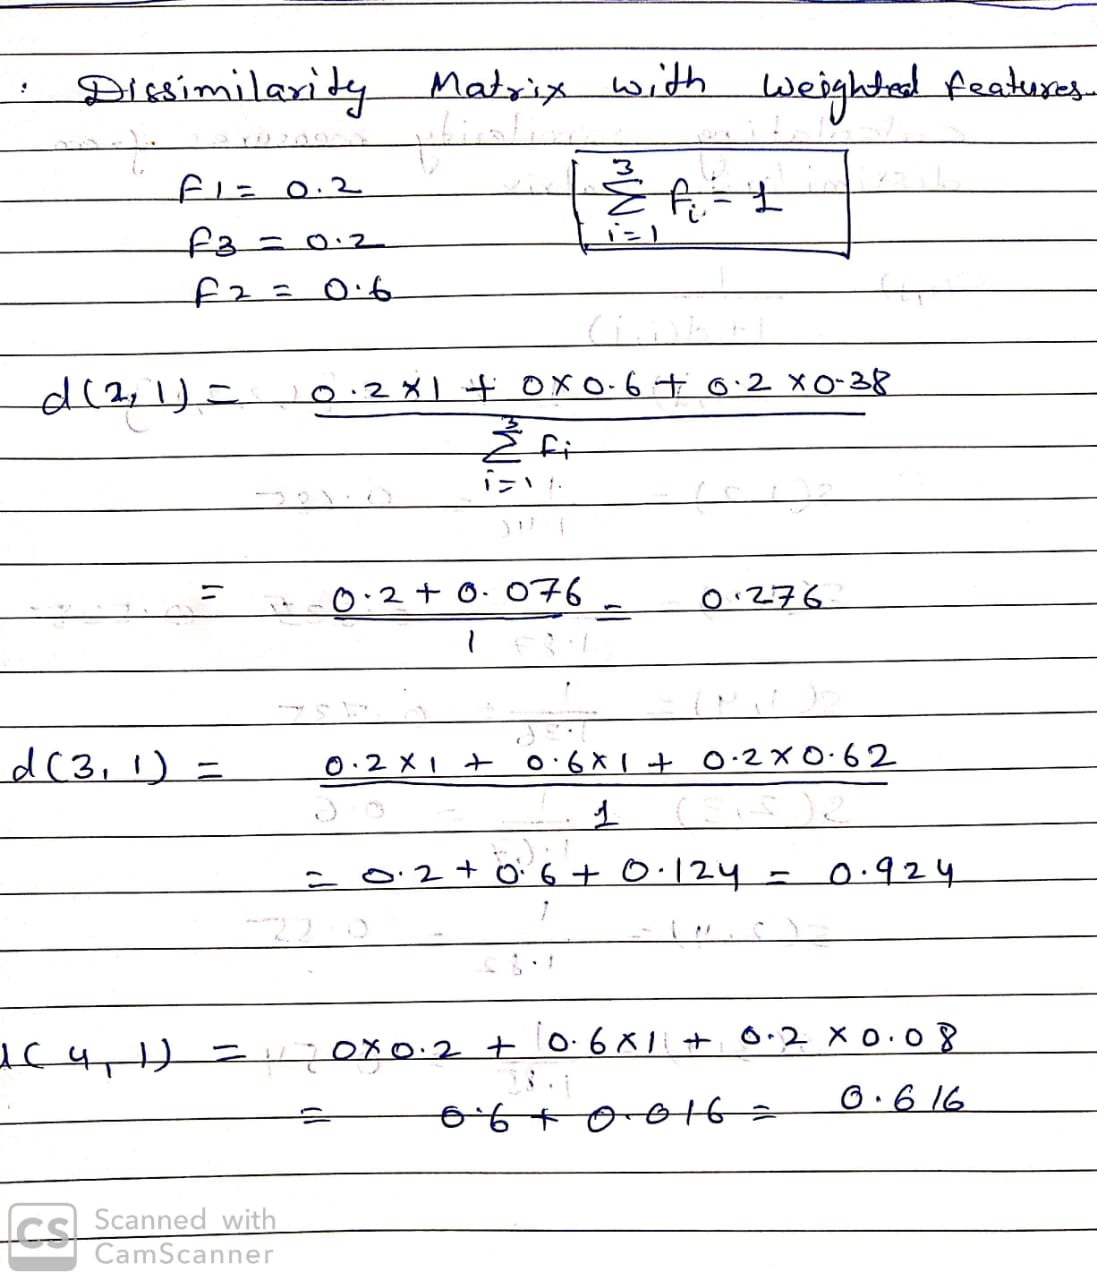 . Dissimilarity Matrix with Weighted features.
f1 = 0.2
3
Σ fi = 1
i=1
f3 = 0.2
f2 = 0.6
d(2,1) = 0.2 × 1 + 0 × 0.6 + 0.2 × 0.38
3
Σ fi
i=1
= 0.2 + 0.076 = 0.276
1
d(3,1) = 0.2 × 1 + 0.6 × 1 + 0.2 × 0.62
1
= 0.2 + 0.6 + 0.124 = 0.924
d(4,1) = 0×0.2 + 0.6×1 + 0.2 × 0.08
= 0.6 + 0.016 = 0.616
CS Scanned with
CamScanner